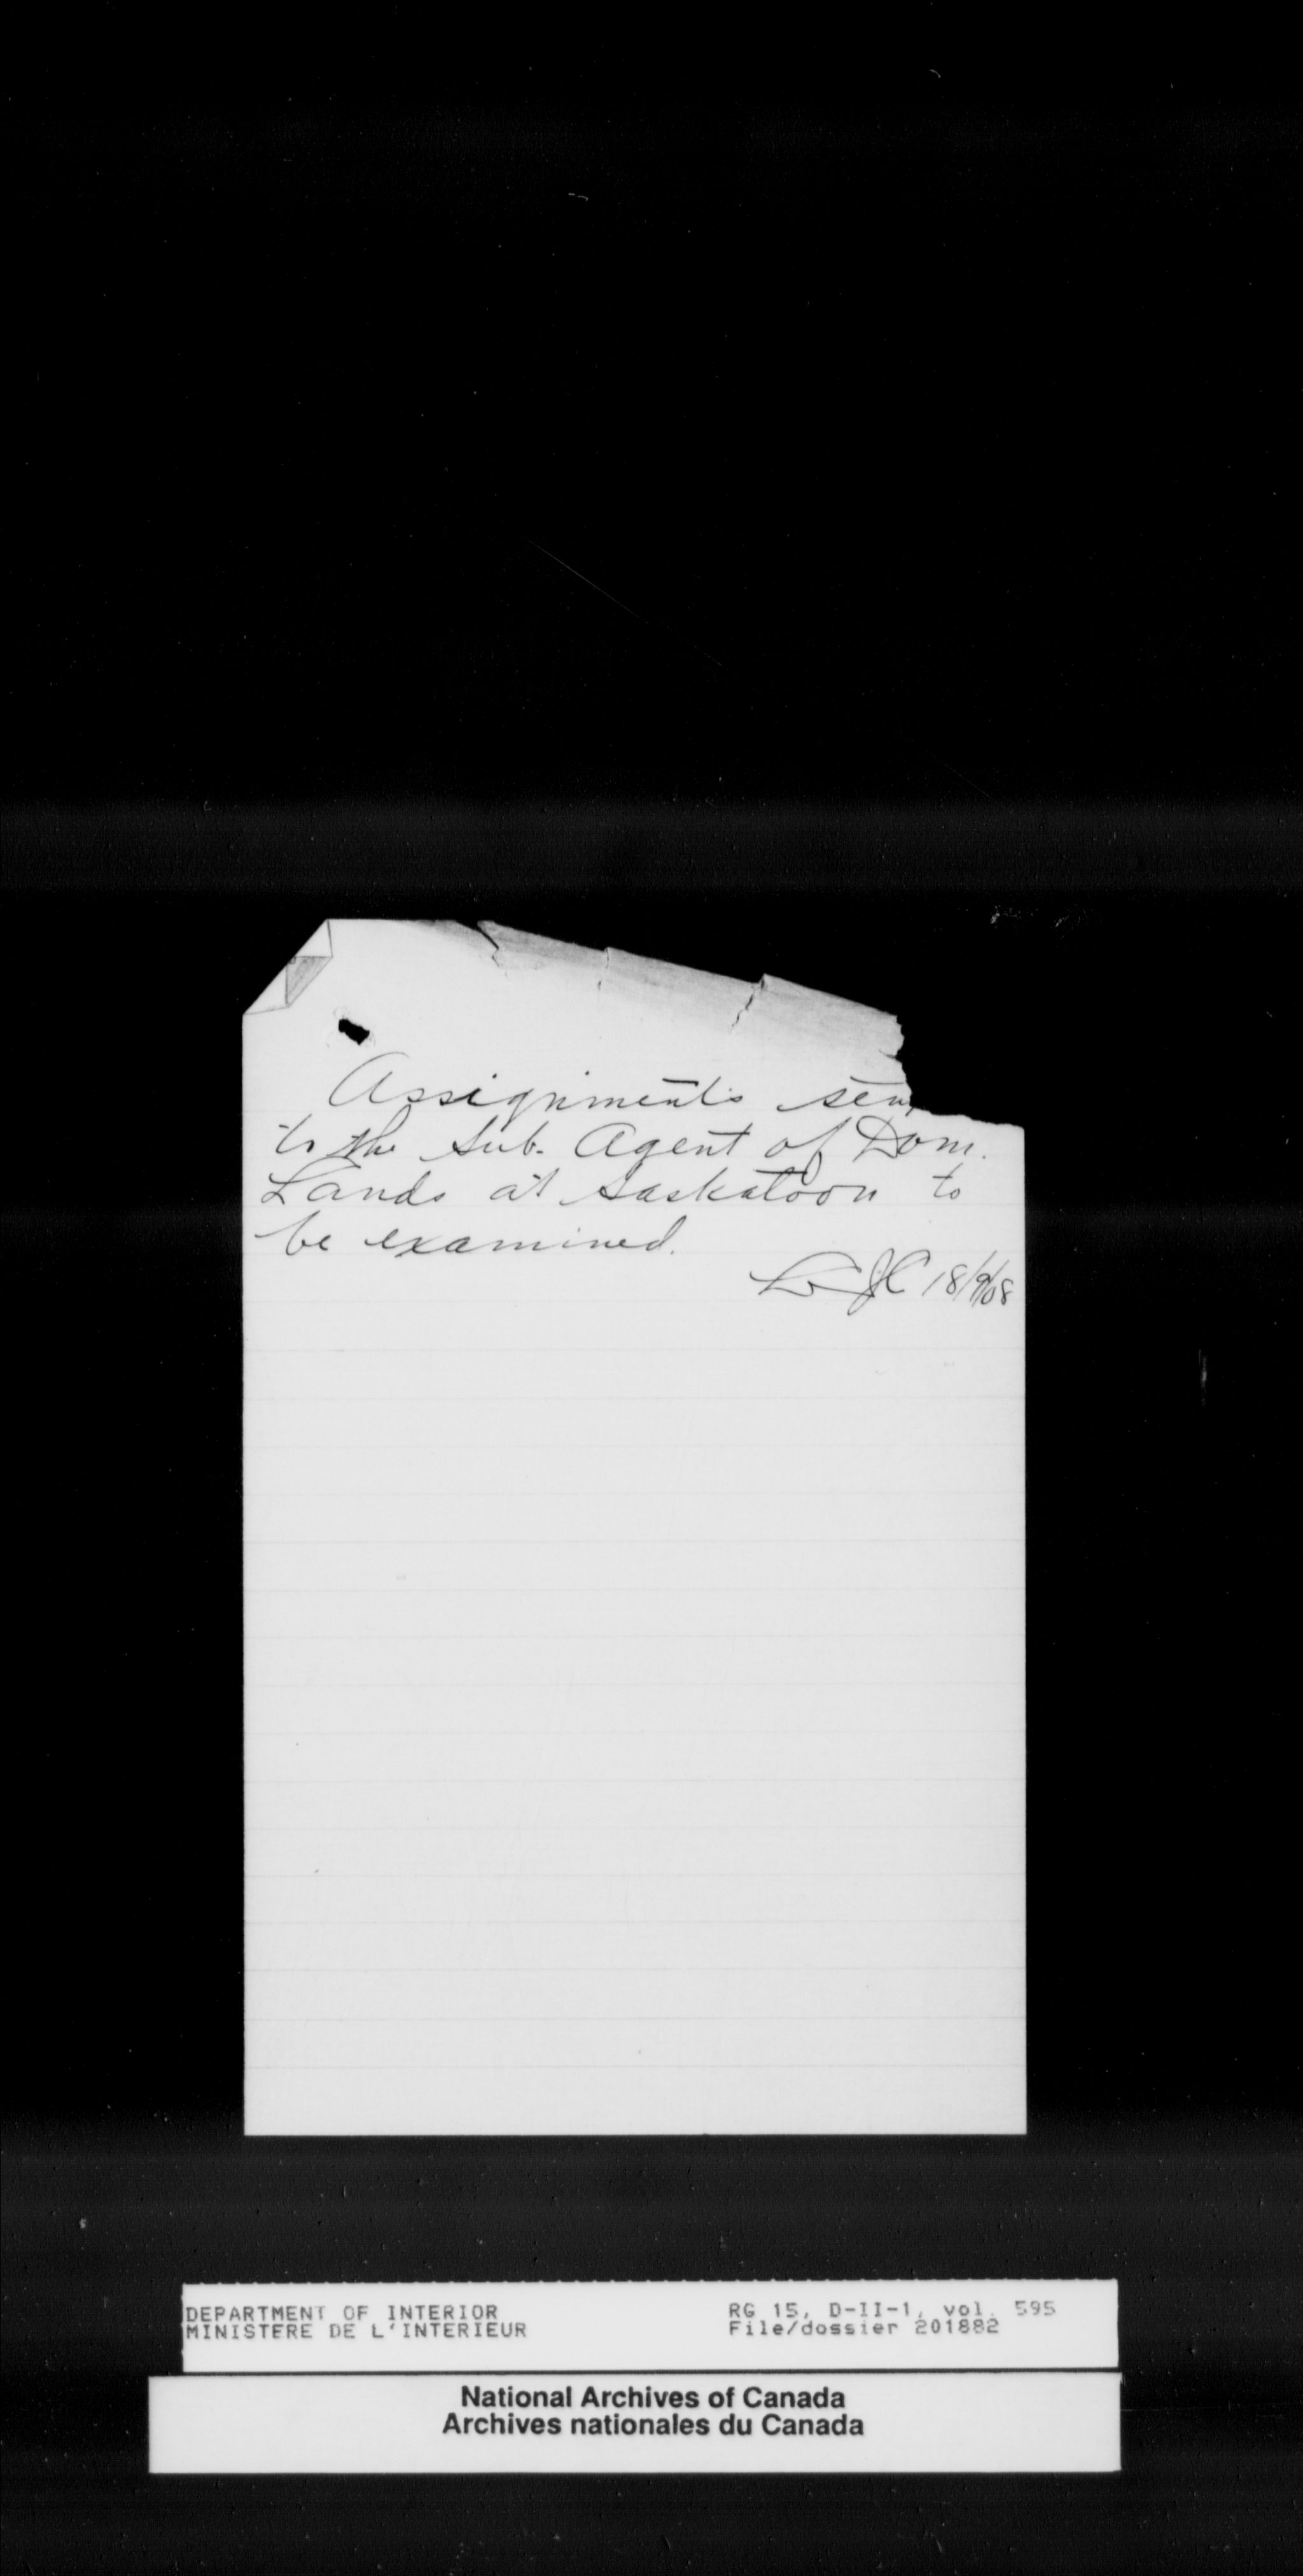 Assignments sen
to the Sub. Agent of Dom.
Lands at Saskatoon to
be examined.
18/9/08
DEPARTMENT OF INTERIOR
MINISTERE DE L'INTERIEUR
RG 15, D-II-1, vol. 595
File/dossier 201882
National Archives of Canada
Archives nationales du Canada